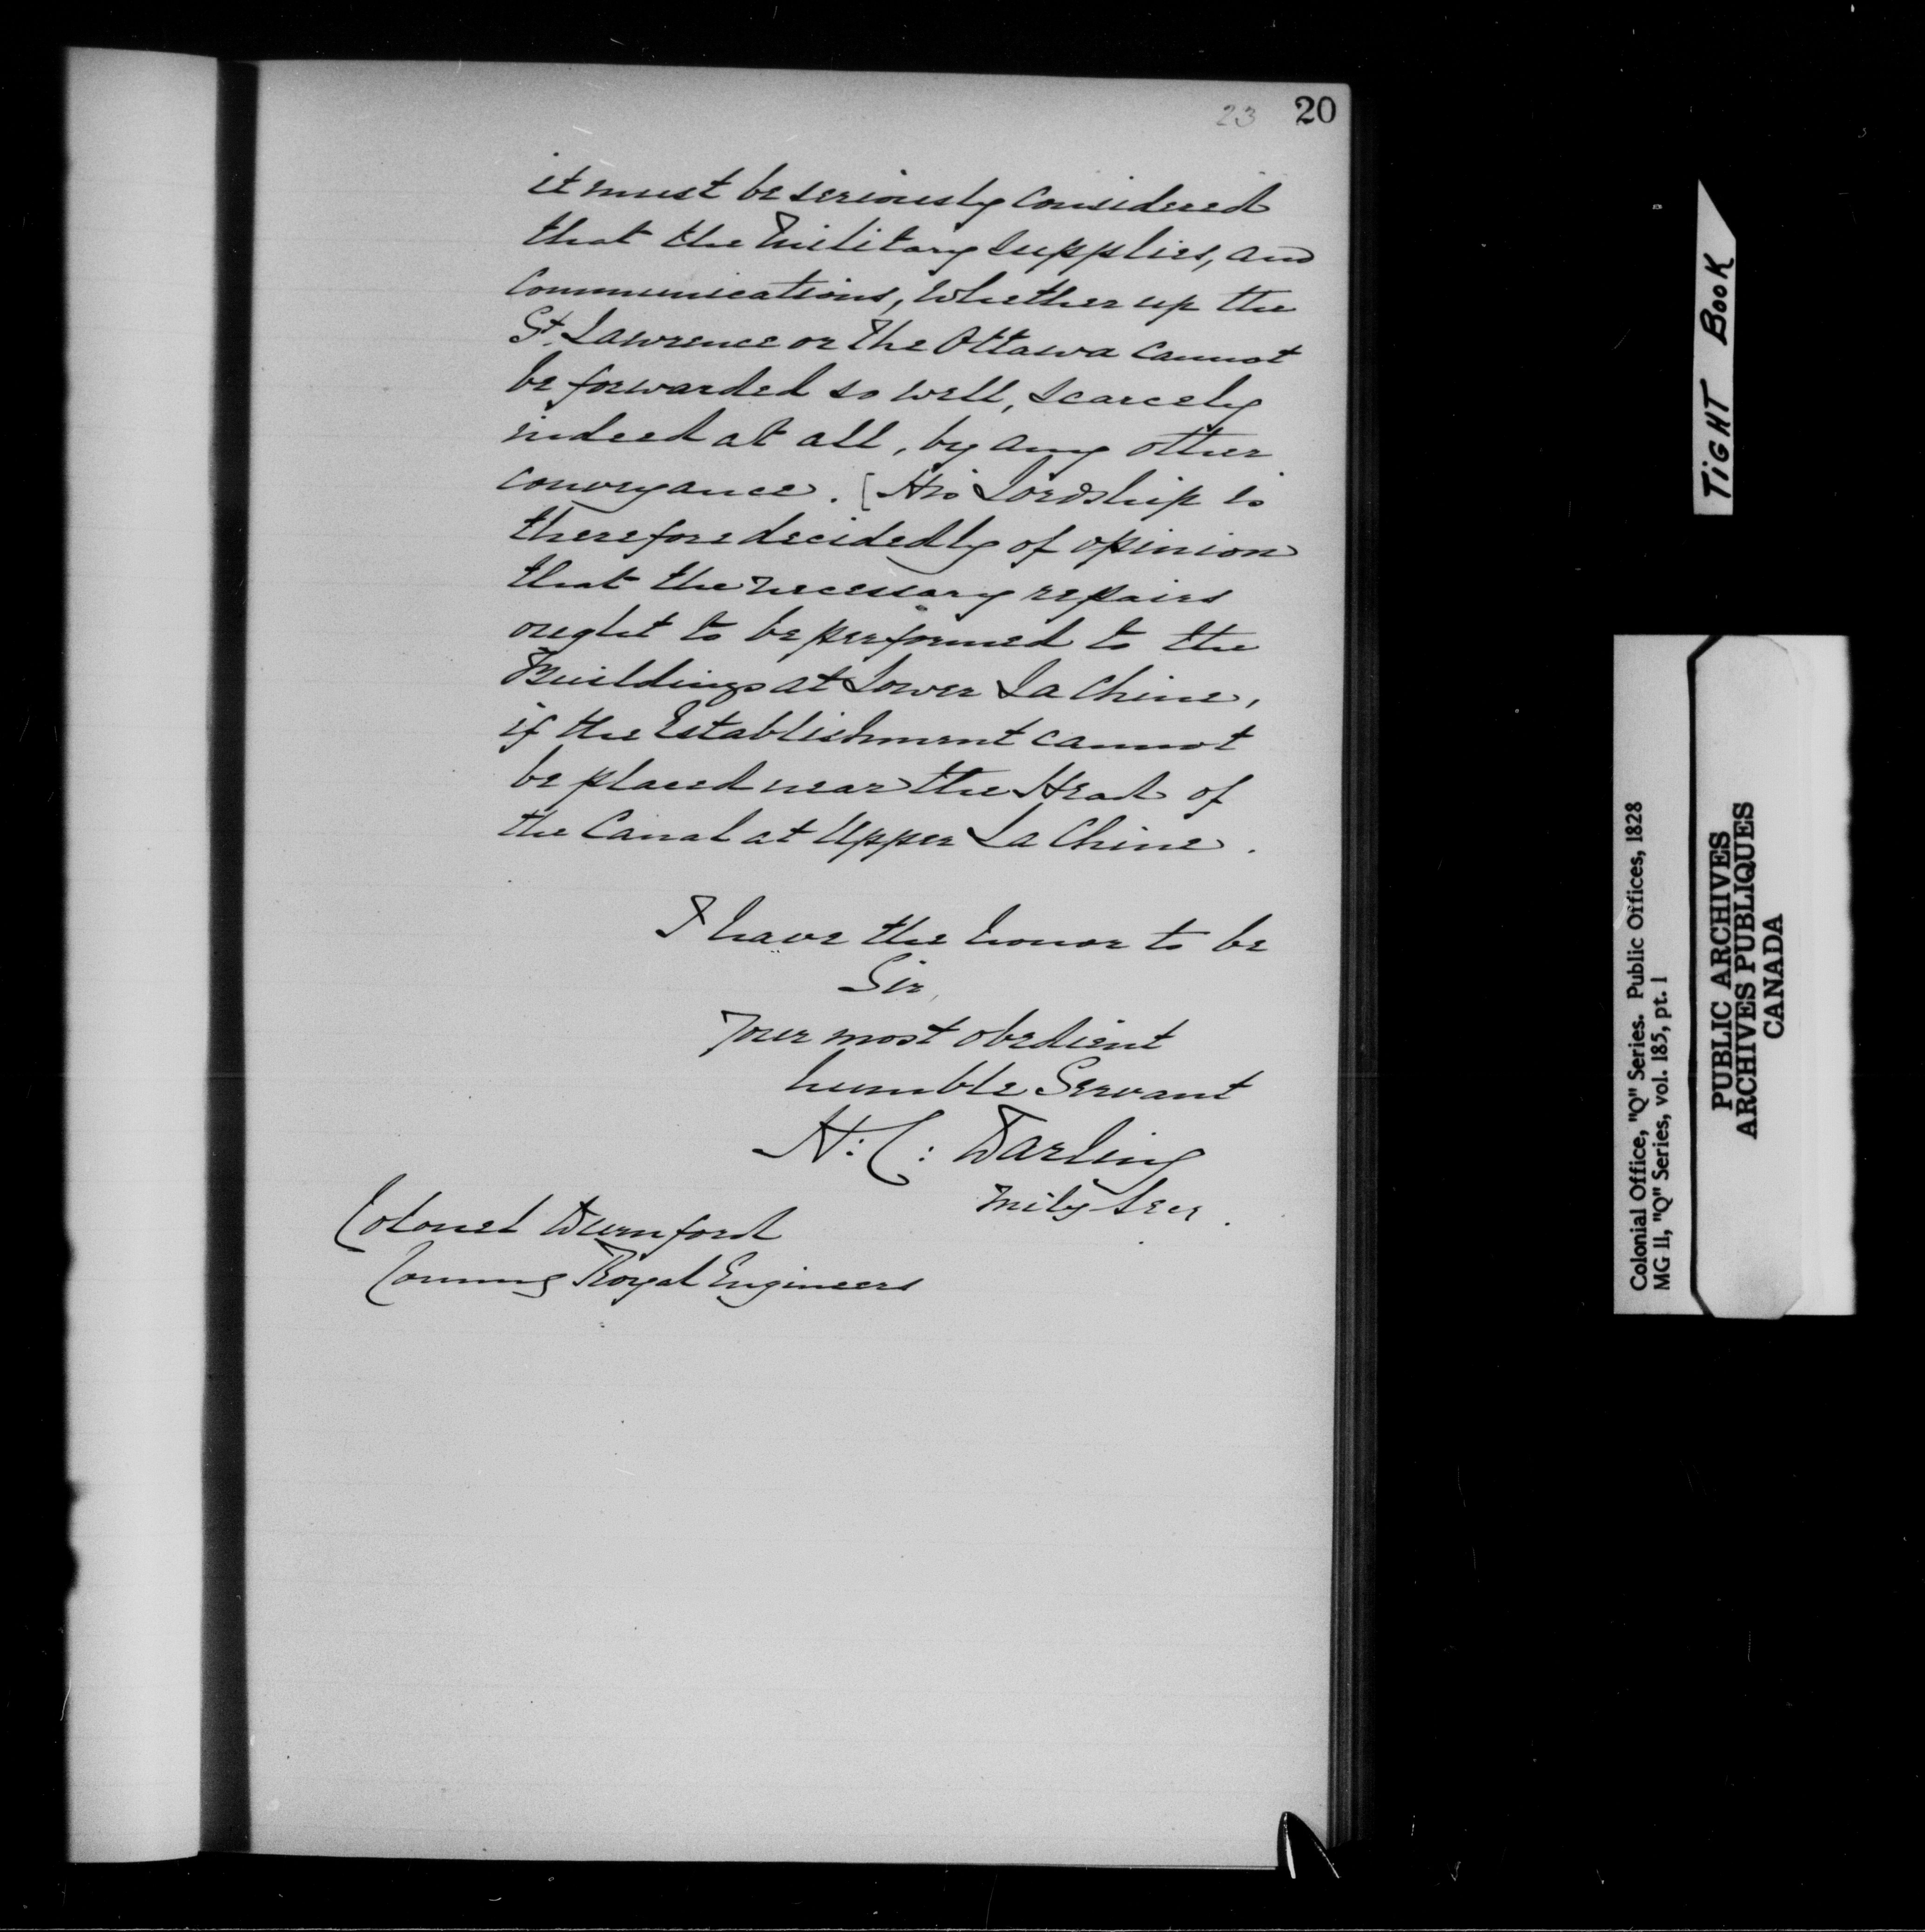 23 20
it must be seriously considered
that the Military supplies, and
Communications, whether up the
St. Lawrence or the Ottawa cannot
be forwarded so well, scarcely
indeed at all, by any other
conveyance. [His Lordship is
therefore decidedly of opinion
that the necessary repairs
ought to be performed to the
Buildings at Lower La Chine,
if the Establishment cannot
be placed near the Head of
the Canal at Upper La Chine.
I have the honor to be
Sir,
Your most obedient
humble Servant
H: C: Darling
Mily Secy.
Colonel Durnford
Commg Royal Engineers
TIGHT BOOK
Colonial Office, "Q" Series. Public Offices, 1828
MG 11, "Q" Series, vol. 185, pt. 1
PUBLIC ARCHIVES
ARCHIVES PUBLIQUES
CANADA